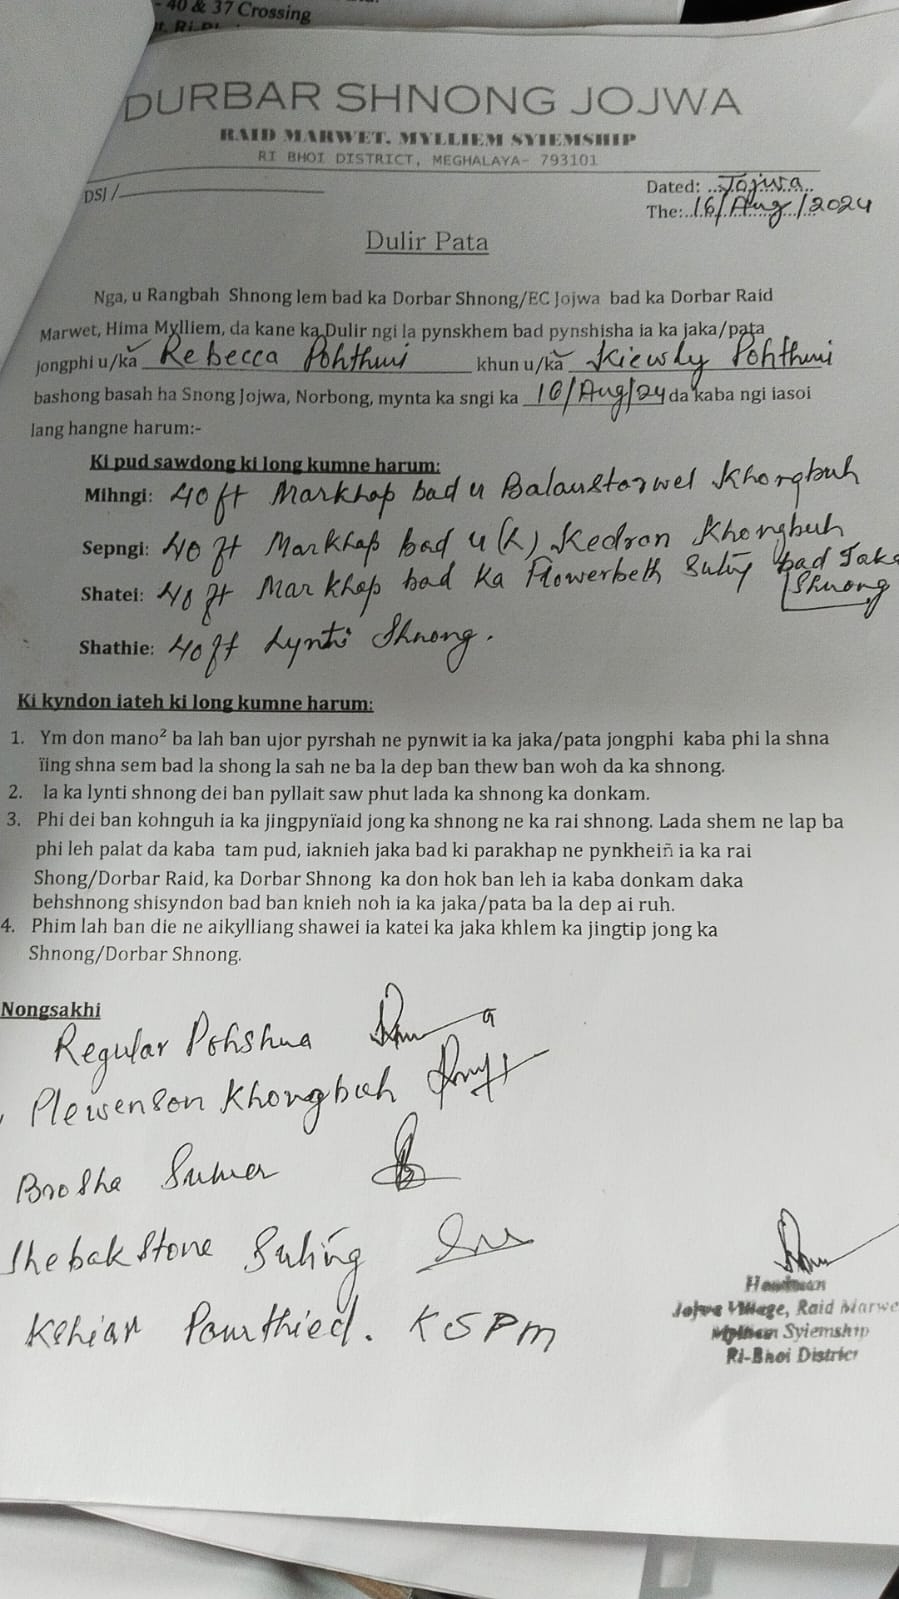 - 40 & 37 Crossing
DURBAR SHNONG JOJWA
RAID MARWET. MYLLIEM SYIEMSHIP
RI BHOI DISTRICT, MEGHALAYA- 793101
DSJ /
Dated: ..Jojwa..
The:..16/Aug/2024
Dulir Pata
Nga, u Rangbah Shnong lem bad ka Dorbar Shnong/EC Jojwa bad ka Dorbar Raid
Marwet, Hima Mylliem, da kane ka Dulir ngi la pynskhem bad pynshisha ia ka jaka/pata
jongphi u/ka Rebecca Pohthmi khun u/ka Kiewly Pohthmi
bashong basah ha Snong Jojwa, Norbong, mynta ka sngi ka 16/Aug/24 da kaba ngi iasoi
lang hangne harum:-
Ki pud sawdong ki long kumne harum:
Mihngi: 40 ft Markhap bad u Balaustarwel Khongbuh
Sepngi: 40 ft Markhap bad u (L) Kedron Khongbuh
Shatei: 40 ft Markhap bad Ka Flowerbeth Suting bad Jaka
Shnong
Shathie: 40 ft Lynti Shnong.
Ki kyndon iateh ki long kumne harum:
1. Ym don mano² ba lah ban ujor pyrshah ne pynwit ia ka jaka/pata jongphi kaba phi la shna
ïing shna sem bad la shong la sah ne ba la dep ban thew ban woh da ka shnong.
2. Ia ka lynti shnong dei ban pyllait saw phut lada ka shnong ka donkam.
3. Phi dei ban kohnguh ia ka jingpynïaid jong ka shnong ne ka rai shnong. Lada shem ne lap ba
phi leh palat da kaba tam pud, iaknieh jaka bad ki parakhap ne pynkheiñ ia ka rai
Shong/Dorbar Raid, ka Dorbar Shnong ka don hok ban leh ia kaba donkam daka
behshnong shisyndon bad ban knieh noh ia ka jaka/pata ba la dep ai ruh.
4. Phim lah ban die ne aikylliang shawei ia katei ka jaka khlem ka jingtip jong ka
Shnong/Dorbar Shnong.
Nongsakhi
Regular Pohshna
Plewenson Khongbuh
Brosha Sumer
Shebakstone Suting
Kshiar Pourthied. KSPM
Headman
Jojwa Village, Raid Marwe
Mylliem Syiemship
Ri-Bhoi District